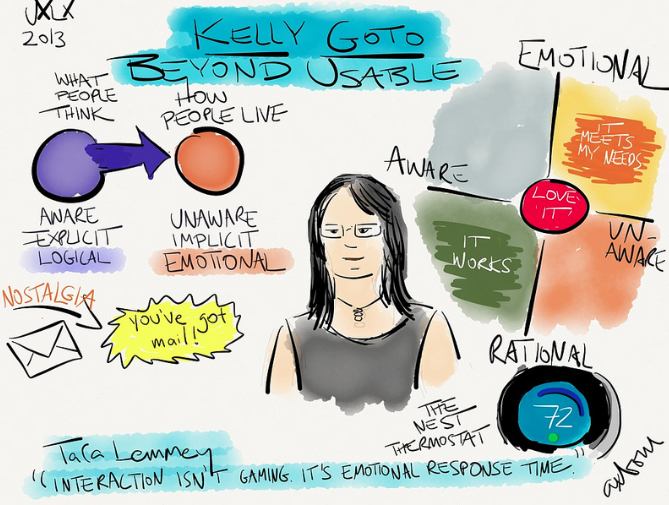 UXLX
2013
KELLY GOTO
BEYOND USABLE
WHAT
PEOPLE
THINK
HOW
PEOPLE LIVE
AWARE
EXPLICIT
LOGICAL
UNAWARE
IMPLICIT
EMOTIONAL
NOSTALGIA
you've got
mail!
EMOTIONAL
AWARE
IT
MEETS
MY NEEDS
LOVE
IT
IT
WORKS
UN-
AWARE
RATIONAL
THE
NEST
THERMOSTAT
72
Tara Lemmey
"INTERACTION ISN'T GAMING. IT'S EMOTIONAL RESPONSE TIME."
axbom